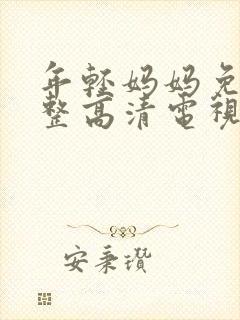 年輕媽媽免
整高清電視
安秉瓚